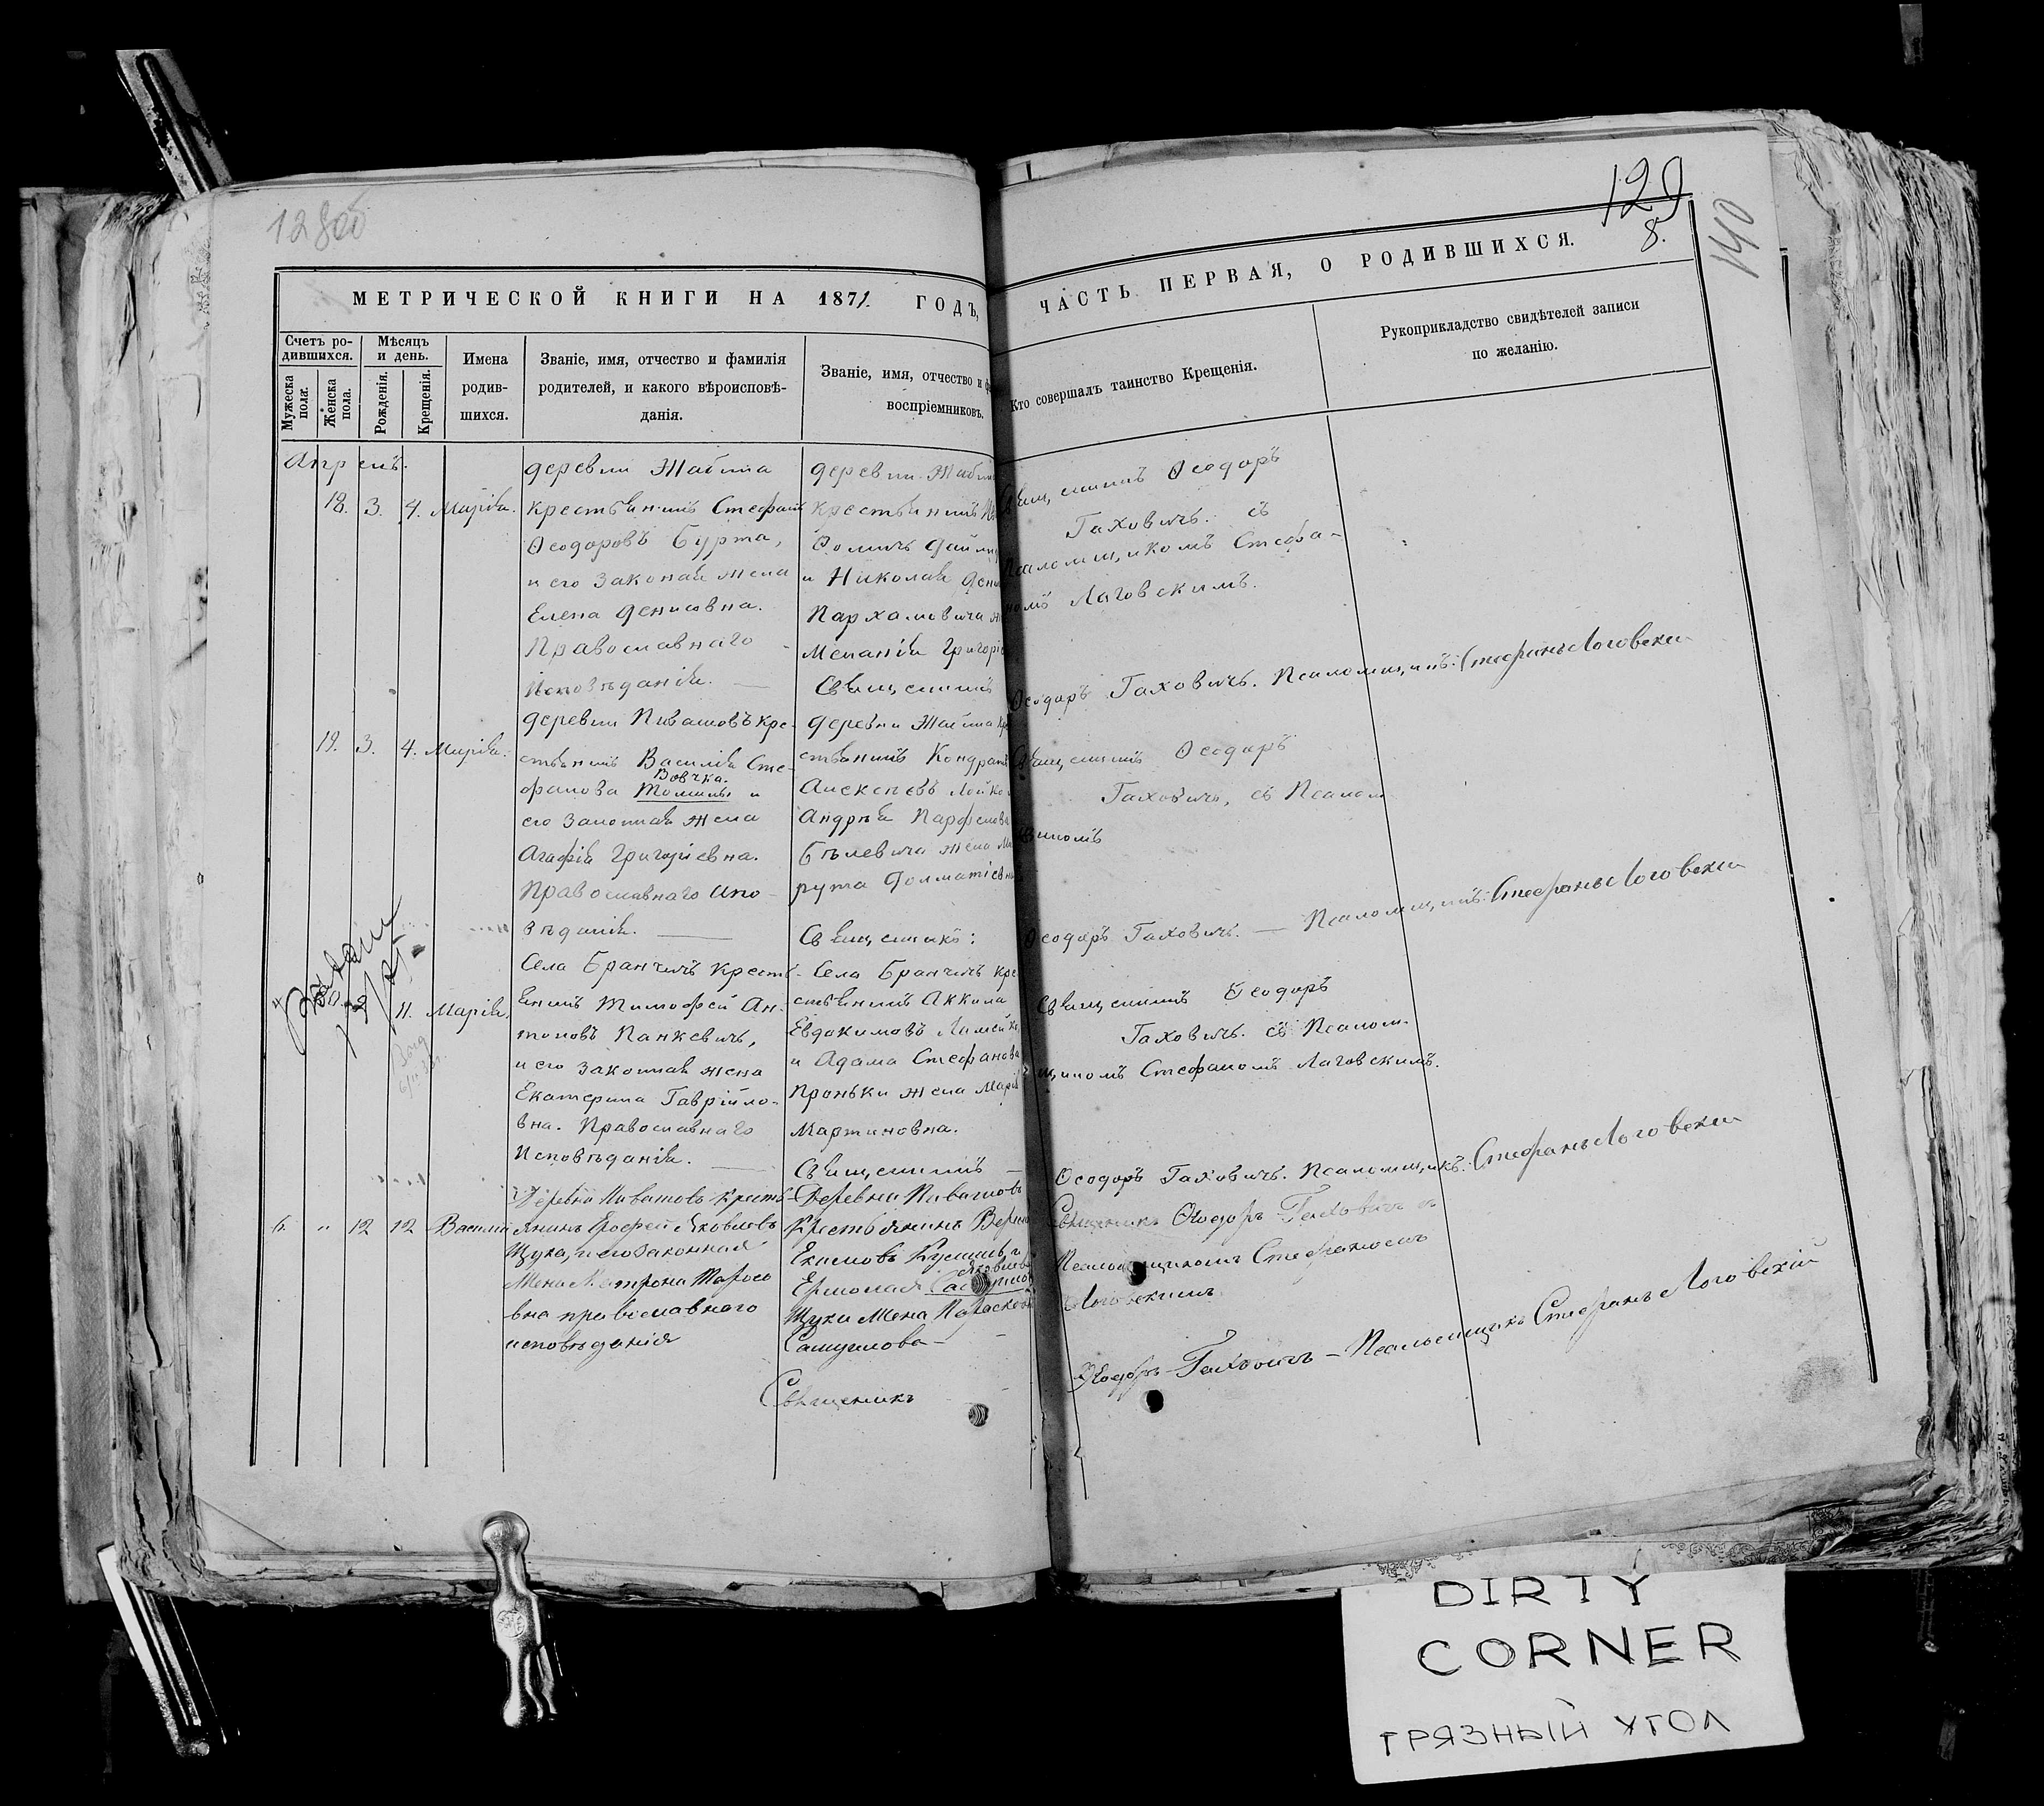 128об
129
8.
140
МЕТРИЧЕСКОЙ КНИГИ НА 1871 ГОДЪ,
ЧАСТЬ ПЕРВАЯ, О РОДИВШИХСЯ.
Счетъ ро-
дившихся.
Мужеска
пола.
Женска
пола.
Мѣсяцъ
и день.
Рожденія.
Крещенія.
Имена
родив-
шихся.
Званіе, имя, отчество и фамилія
родителей, и какого вѣроисповѣ-
данія.
Званіе, имя, отчество и
воспріемниковъ.
Кто совершалъ таинство Крещенія.
Рукоприкладство свидѣтелей записи
по желанію.
Апрель.
18. 3. 4. Марія.
деревни Жабина
крестьянинъ Стефанъ
Ѳеодоровъ Бурта,
и его законная жена
Елена Денисовна.
Православнаго
Исповѣданія.
деревни
крестьянинъ
и Николая
Пархамовича
Меланія
Священникъ
Священникъ Ѳеодоръ
Гаховичъ. съ
Псаломщикомъ Стефа-
номъ Лаговскимъ.
Ѳеодоръ Гаховичъ. Псаломщикъ: Стефанъ Логовскій
19. 3. 4. Марія.
деревни Пивашовъ кре-
стьянинъ Василія Сте-
фанова
Вовчка.
и
его законная жена
Агафія Григоріевна.
Православнаго Испо-
вѣданія.
деревни
стьянинъ
Алексѣевъ
Андрѣя
Бѣлевича жена
рута
Священникъ:
Священникъ Ѳеодоръ
Гаховичъ, съ Псалом-
щикомъ
Ѳеодоръ Гаховичъ. — Псаломщикъ: Стефанъ Логовскій
11. Марія.
Села Бранчичъ кресть-
янинъ Тимофей Ан-
тоновъ Панкевичъ,
и его законная жена
Екатерина Гаврійло-
вна. Православнаго
Исповѣданія.
Села Бранчичъ кре-
стьянинъ Аккила
Евдокимовъ
и Адама Стефанова
Проньки жена Марія
Мартиновна.
Священникъ
Священникъ Ѳеодоръ
Гаховичъ. съ Псалом-
щикомъ Стефаномъ Лаговскимъ.
Ѳеодоръ Гаховичъ. Псаломщикъ: Стефанъ Логовскій
6. " 12 12 Василій
Деревни Пивашовъ кресть-
янинъ Ерофей Яковлевъ
Щука, и его законная
жена Матрона Тарасо
вна православнаго
исповѣданія
Деревни Пивашовъ
Крестьянинъ
Екимовъ
Ермолая
Яковлева
Щуки жена
Самуилова —
Священникъ
Священникъ Ѳеодоръ Гаховичъ съ
Псаломщикомъ Стефаномъ
Логовскимъ
Ѳеодоръ Гаховичъ — Псаломщикъ Стефанъ Логовскій
DIRTY
CORNER
ГРЯЗНЫЙ УГОЛ